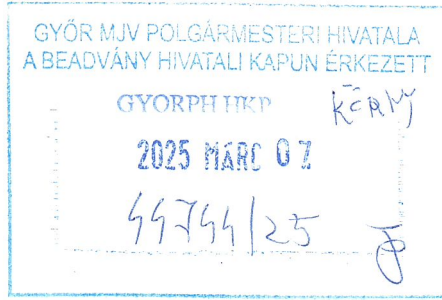 GYŐR MJV POLGÁRMESTERI HIVATALA
A BEADVÁNY HIVATALI KAPUN ÉRKEZETT
GYORPH HKP
2025 MÁRC 07
44744/25